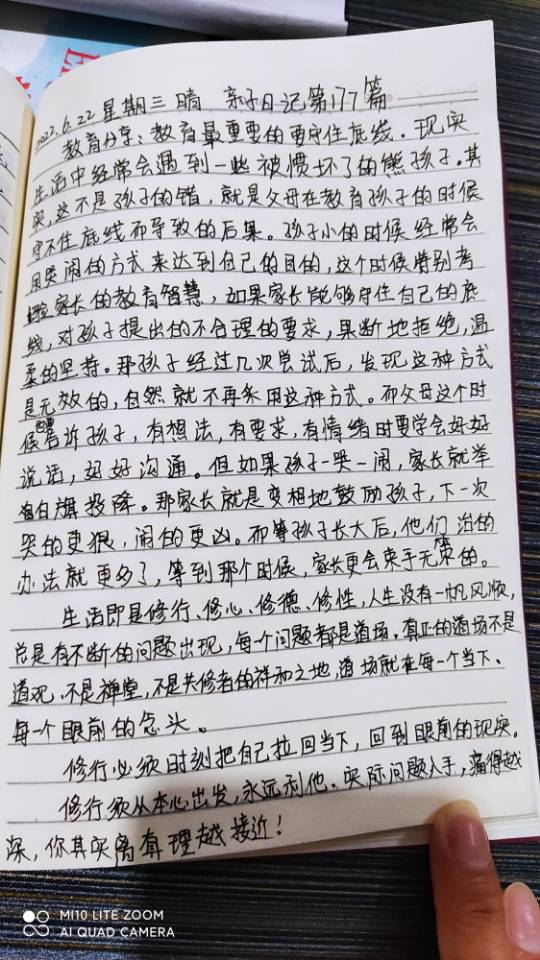 2022.6.22 星期三 晴 亲子日记第177篇
教育分享：教育最重要的要守住底线．现实
生活中经常会遇到一些被惯坏了的熊孩子。其
实，这不是孩子的错，就是父母在教育孩子的时候
守不住底线而导致的后果。孩子小的时候经常会
用哭闹的方式来达到自己的目的，这个时候特别考
验家长的教育智慧，如果家长能够守住自己的底
线，对孩子提出的不合理的要求，果断地拒绝，温
柔的坚持。那孩子经过几次尝试后，发现这种方式
是无效的，自然就不再采用这种方式。而父母这个时
候也要告诉孩子，有想法，有要求，有情绪时要学会好好
说话，好好沟通。但如果孩子一哭一闹，家长就举
白旗投降。那家长就是变相地鼓励孩子，下一次
哭的更狠，闹的更凶。而等孩子长大后，他们治的
办法就更多了，等到那个时候，家长更会束手无策的。
生活即是修行、修心、修德、修性，人生没有一帆风顺，
总是有不断的问题出现，每个问题都是道场。真正的道场不是
道观，不是禅堂，不是共修者的祥和之地，道场就在每一个当下、
每一个眼前的念头。
修行必须时刻把自己拉回当下，回到眼前的现实。
修行须从本心出发，永远利他、实际问题入手，痛得越
深，你其实离真理越接近！
MI10 LITE ZOOM
AI QUAD CAMERA